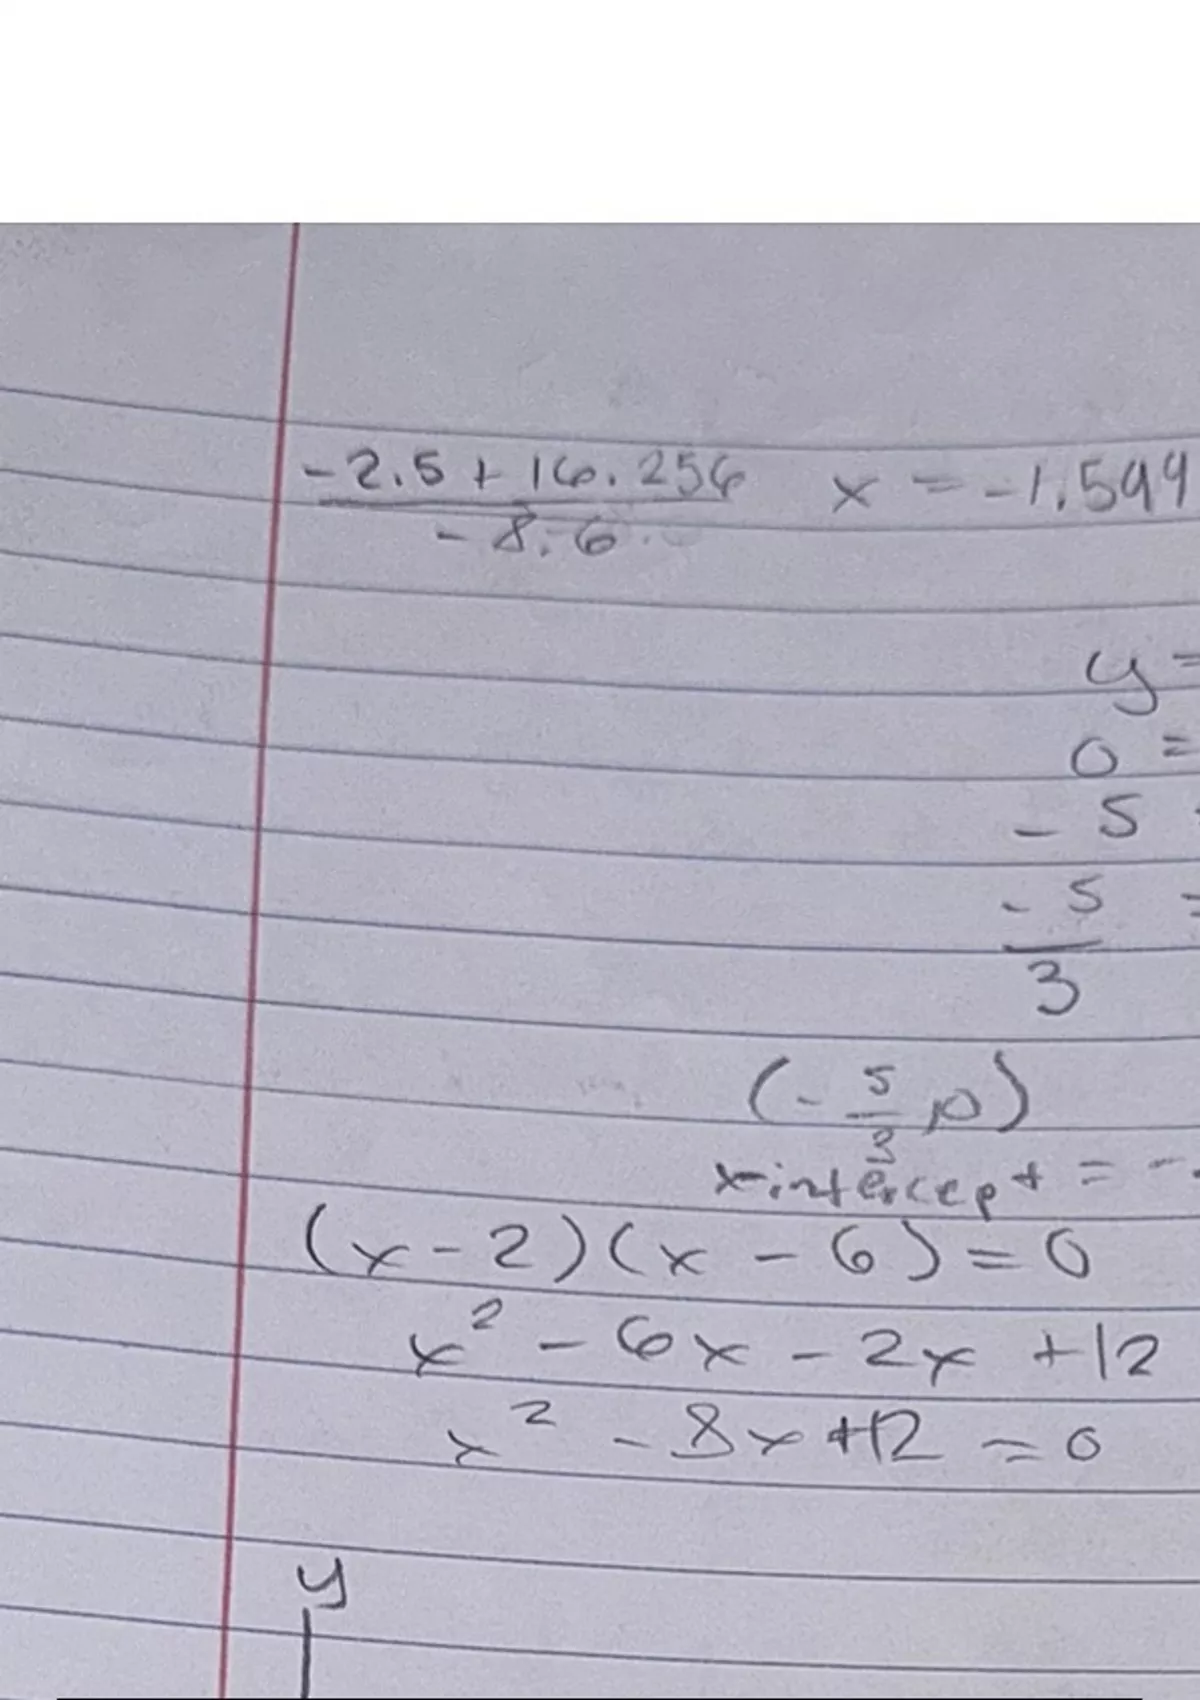 -2.5 + 16.256
-8.6
x = -1.599
y =
0 =
- 5
- 5 =
3
(- 5/3, 0)
x-intercept = -
(x - 2)(x - 6) = 0
x² - 6x - 2x + 12
x² - 8x + 12 = 0
y